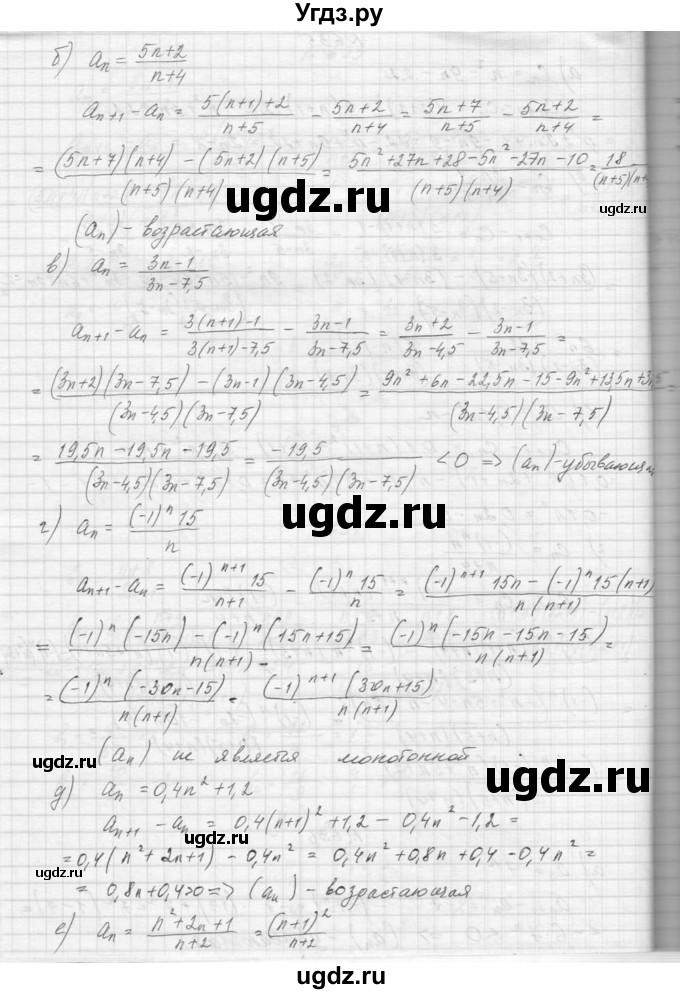 Угдз.ру
б) aₙ = (5n+2)/(n+4)
aₙ₊₁ - aₙ = (5(n+1)+2)/(n+5) - (5n+2)/(n+4) = (5n+7)/(n+5) - (5n+2)/(n+4) =
= ((5n+7)(n+4) - (5n+2)(n+5))/((n+5)(n+4)) = (5n²+27n+28-5n²-27n-10)/((n+5)(n+4)) = 18/((n+5)(n+
ugdz.ru ugdz.ru
(aₙ) - возрастающая
в) aₙ = (3n-1)/(3n-7,5)
aₙ₊₁ - aₙ = (3(n+1)-1)/(3(n+1)-7,5) - (3n-1)/(3n-7,5) = (3n+2)/(3n-4,5) - (3n-1)/(3n-7,5) =
ugdz.ru
= ((3n+2)(3n-7,5) - (3n-1)(3n-4,5))/((3n-4,5)(3n-7,5)) = (9n²+6n-22,5n-15-9n²+13,5n+3n-4,5)/((3n-4,5)(3n-7,5)) =
= (19,5n-19,5n-19,5)/((3n-4,5)(3n-7,5)) = -19,5/((3n-4,5)(3n-7,5)) < 0 => (aₙ) - убывающая
ugdz.ru
г) aₙ = ((-1)ⁿ 15)/n
ugdz.ru
aₙ₊₁ - aₙ = ((-1)ⁿ⁺¹ 15)/(n+1) - ((-1)ⁿ 15)/n = ((-1)ⁿ⁺¹ 15n - (-1)ⁿ 15(n+1))/(n(n+1))
= ((-1)ⁿ(-15n) - (-1)ⁿ(15n+15))/(n(n+1)) = ((-1)ⁿ(-15n-15n-15))/(n(n+1)) =
ugdz.ru
= ((-1)ⁿ(-30n-15))/(n(n+1)) = ((-1)ⁿ⁺¹(30n+15))/(n(n+1))
(aₙ) не является монотонной
ugdz.ru ugdz.ru
д) aₙ = 0,4n²+1,2
aₙ₊₁ - aₙ = 0,4(n+1)²+1,2 - 0,4n²-1,2 =
ugdz.ru
= 0,4(n²+2n+1) - 0,4n² = 0,4n²+0,8n+0,4-0,4n² =
= 0,8n+0,4>0 => (aₙ) - возрастающая
е) aₙ = (n²+2n+1)/(n+2) = (n+1)²/(n+2)
ugdz.ru